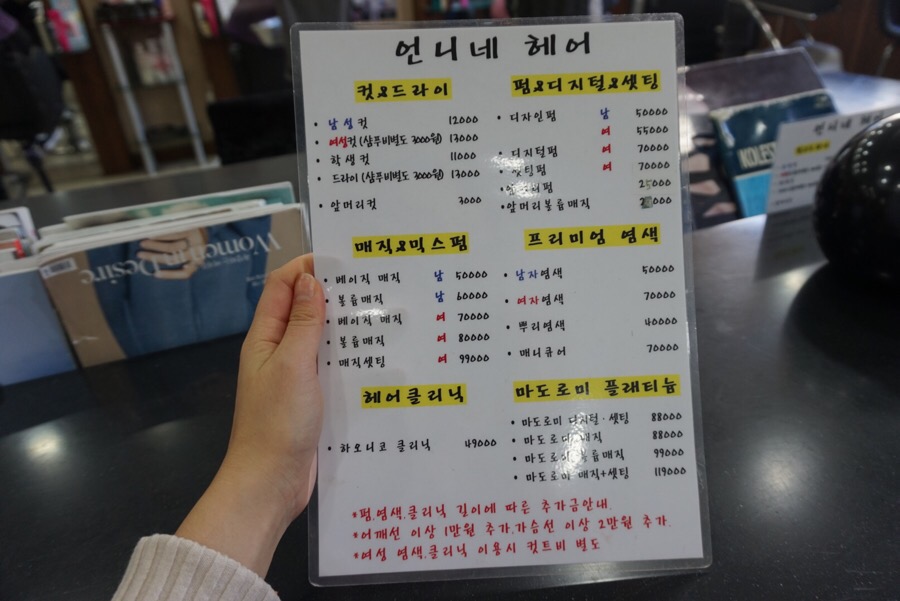 언니네 헤어
컷&드라이
• 남성컷 12000
• 여성컷 (샴푸비별도 3000원) 13000
• 학생컷 11000
• 드라이 (샴푸비별도 3000원) 13000
• 앞머리컷 3000
펌&디지털&셋팅
• 디자인펌 남 50000
여 55000
• 디지털펌 여 70000
• 셋팅펌 여 70000
펌
• 앞머리볼륨매직
매직&믹스펌
• 베이직 매직 남 50000
• 볼륨매직 남 60000
• 베이직 매직 여 70000
• 볼륨매직 여 80000
• 매직셋팅 여 99000
프리미엄 염색
• 남자염색 50000
• 여자염색 70000
• 뿌리염색 40000
• 매니큐어 70000
헤어클리닉
• 하오니코 클리닉 49000
마도로미 플래티늄
• 마도로미 디지털·셋팅 88000
• 마도로미 매직 88000
• 마도로미 볼륨매직 99000
• 마도로미 매직+셋팅 119000
*펌,염색,클리닉 길이에 따른 추가금안내.
*어깨선 이상 1만원 추가,가슴선 이상 2만원 추가.
*여성 염색,클리닉 이용시 컷트비 별도
Women in Desire
언니네 헤어